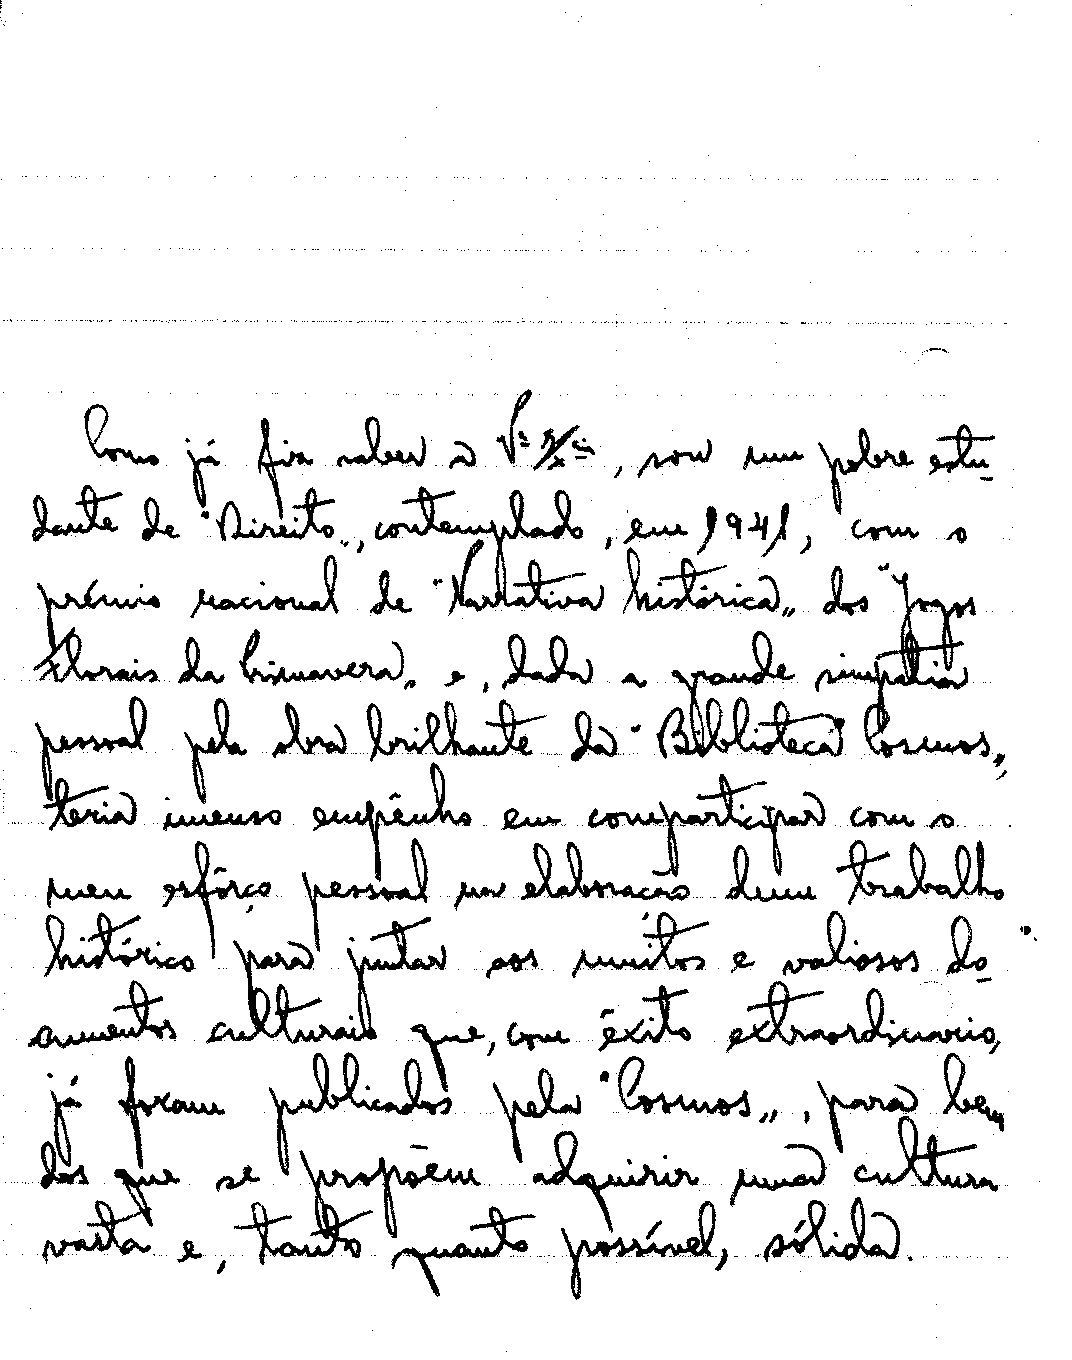 Como já fiz saber a V.ª Ex.cia, sou um pobre estu-
dante de "Direito", contemplado, em 1941, com o
prémio nacional de "Narrativa histórica" dos "Jogos
Florais da Primavera" e, dada a grande simpatia
pessoal pela obra brilhante da "Biblioteca Cosmos",
teria imenso empênho em comparticipar com o
meu esfôrço pessoal na elaboração dum trabalho
histórico para juntar aos muitos e valiosos do-
cumentos culturais que, com êxito extraordinario,
já foram publicados pela "Cosmos", para bem
dos que se propõem adquirir uma cultura
vasta e, tanto quanto possível, sólida.